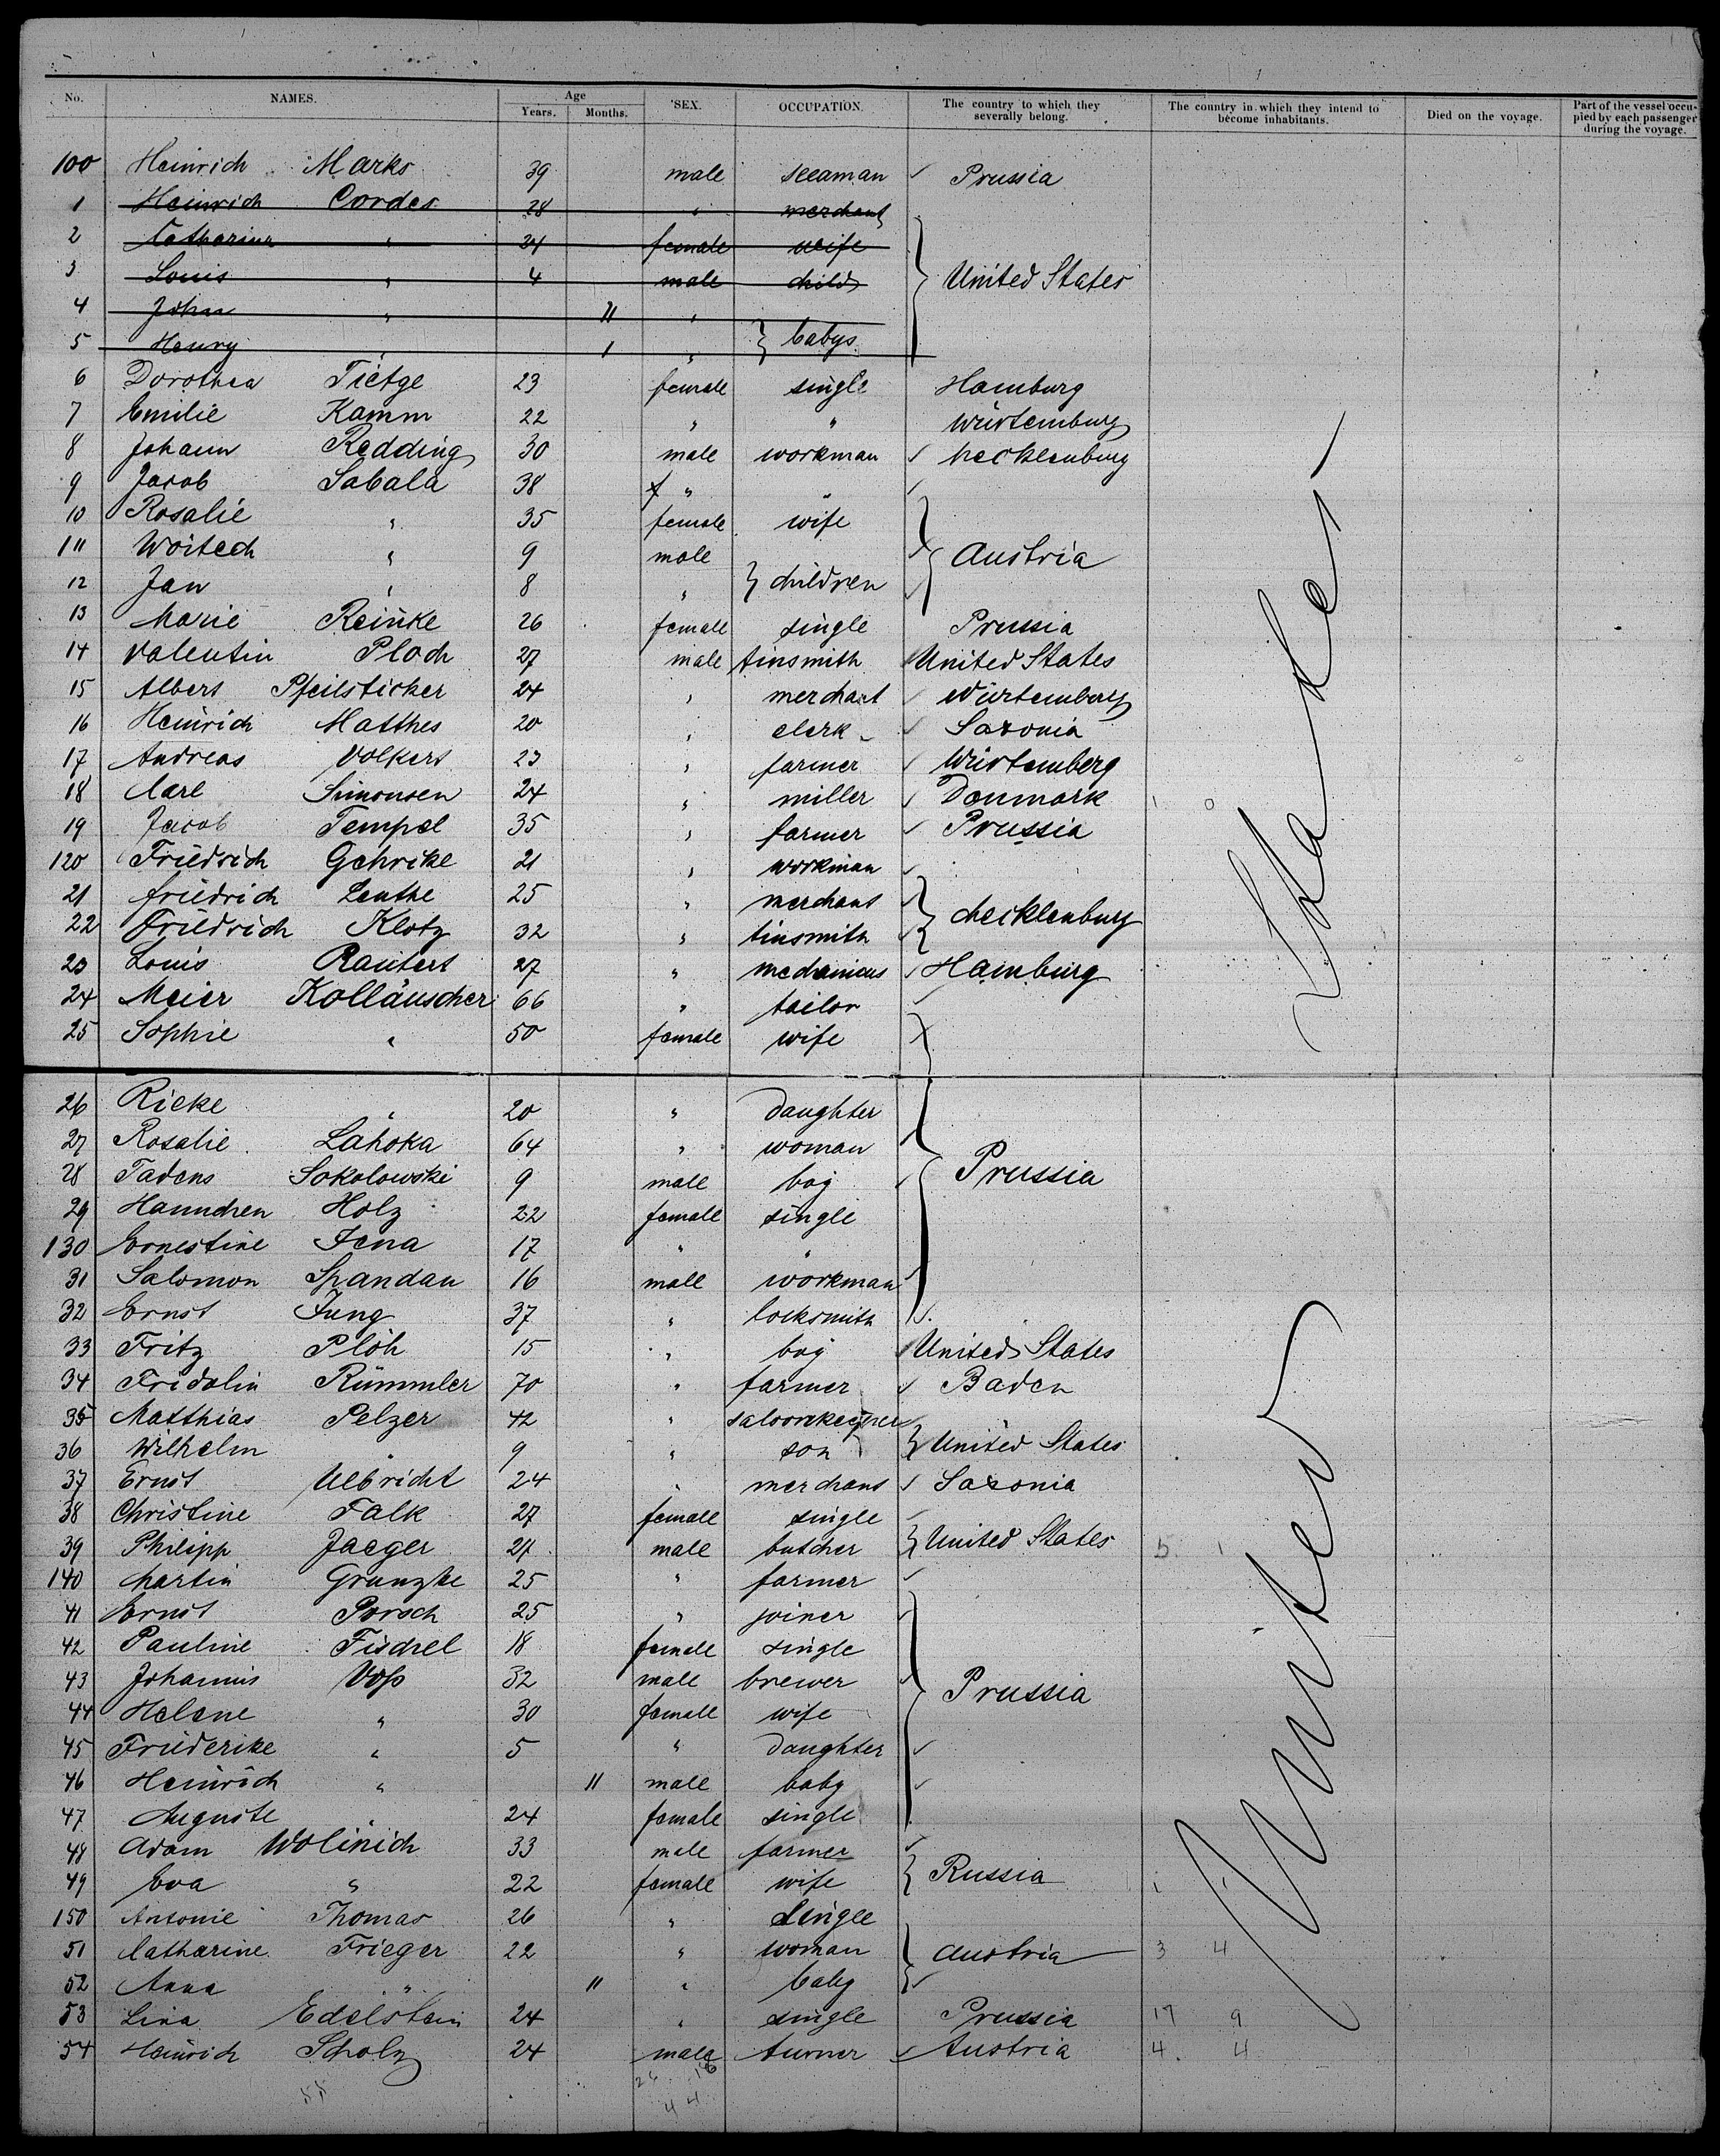 No. NAMES. Age Years. Months. SEX. OCCUPATION. The country to which they severally belong. The country in which they intend to become inhabitants. Died on the voyage. Part of the vessel occupied by each passenger during the voyage.
100 Heinrich Marks 39 male seeaman ✓ Prussia
1 Heinrich Cordes 28 " merchant
2 Catharina " 24 female weife
3 Louis " 4 male child United States
4 Johan " 11 "
5 Henry " 1 " babys
6 Dorothea Tietge 23 female single Hamburg
7 Emilie Kamm 22 " " Würtemburg
8 Johann Redding 30 male workman ✓ Mecklenburg
9 Jacob Sabala 38 " " ✓
10 Rosalie " 35 female wife
111 Woitech " 9 male Austria
12 Jan " 8 " children
13 Marie Reinke 26 female single Prussia
14 Valentin Ploch 27 male tinsmith United States
15 Albert Pfeilsticker 24 " merchant ✓ Würtemberg
16 Heinrich Matthes 20 " clerk ✓ Saxonia
17 Andreas Volkert 23 " farmer ✓ Würtemberg
18 Carl Simonsen 24 " miller ✓ Denmark 1 0
19 Jacob Tempel 35 " farmer ✓ Prussia
120 Friedrich Gehrike 21 " workman ✓
21 Friedrich Leuthe 25 " merchant Mecklenburg
22 Friedrich Klotz 32 " tinsmith
23 Louis Rautert 27 " mechanicus ✓ Hamburg
24 Meier Kolläuscher 66 " tailor ✓
25 Sophie " 50 female wife
26 Rieke " 20 " daughter
27 Rosalie Lahoka 64 " woman
28 Tadens Sokolowski 9 male boy Prussia
29 Hannchen Holz 22 female single
130 Ernestine Jena 17 " "
31 Salomon Spandau 16 male workman
32 Ernst Jung 37 " locksmith
33 Fritz Plöh 15 " boy United States
34 Fridolin Rümmler 70 " farmer ✓ Baden
35 Matthias Pelzer 42 " saloonkeeper
36 Wilhelm " 9 " son United States
37 Ernst Ulbricht 24 " merchant ✓ Saxonia
38 Christine Falk 27 female single
39 Philipp Jaeger 21 male butcher United States 5 1
140 Martin Grunzke 25 " farmer ✓
41 Ernst Porsch 25 " joiner
42 Pauline Fischel 18 female single
43 Johannis Voß 32 male brewer Prussia
44 Helene " 30 female wife
45 Friederike " 5 " daughter ✓
46 Heinrich " 11 male baby ✓
47 Auguste " 24 female single
48 Adam Wolinich 33 male farmer
49 Eva " 22 female wife Russia 1 1
150 Antonie Thomas 26 " single
51 Catharine Frieger 22 " woman Austria 3 4
52 Anna " 11 " baby ✓
53 Lina Edelstein 24 " single Prussia 17 9
54 Heinrich Scholz 24 male turner ✓ Austria 4 4
United States
55
26 16
4 4